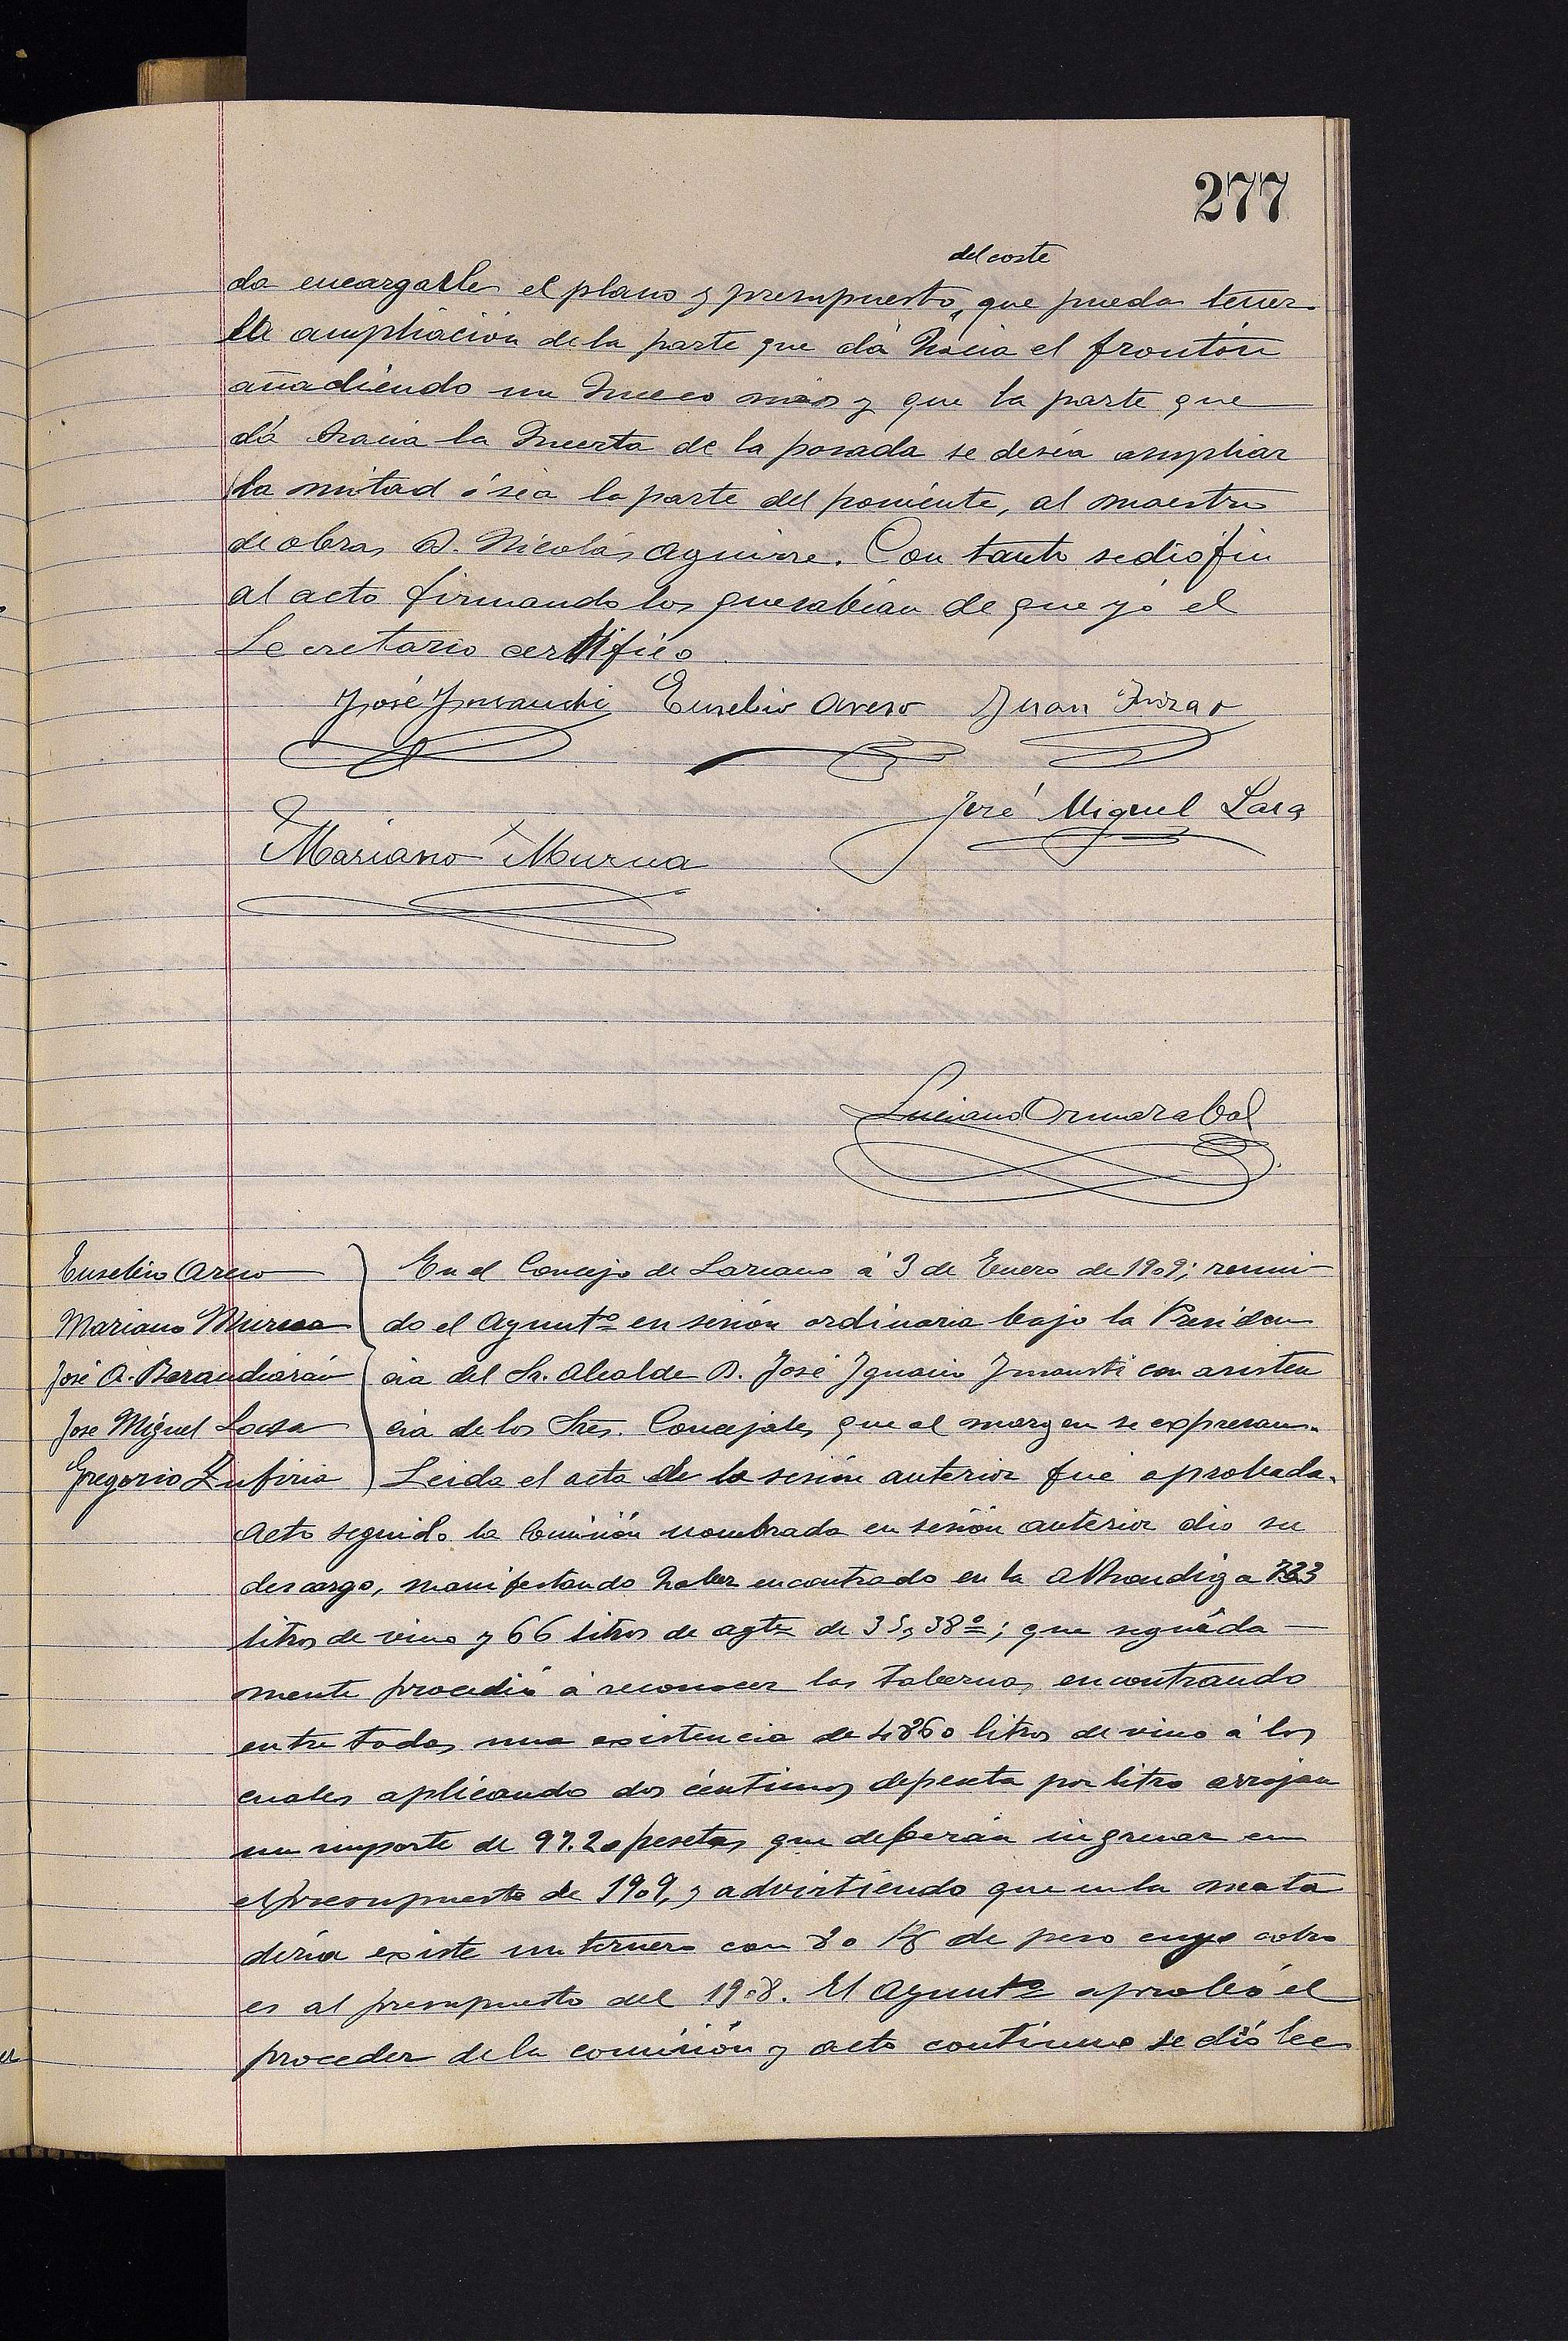 277
del coste
da encargarle el plano y presupuesto, que pueda tener
la ampliación de la parte que dá hácia el frontón
añadiendo un hueco más y que la parte que
dá hacia la huerta de la posada se desea ampliar
la mitad ó sea la parte del poniente, al maestro
de obras D. Nicolás Aguirre. Con tanto se dió fin
al acto firmando los que sabían de que yó el
Secretario certifico.
José Ynsausti Eusebio Areso Juan
José Miguel Lasa
Mariano Murua
Luciano Ormazabal
Eusebio Areso
Mariano Murua
José A. Barandiarán
Jose Miguel Lasa
Gregorio Zufiria
En el Concejo de Lazcano á 3 de Enero de 1909; reuni-
do el Ayuntº en sesión ordinaria bajo la Presiden
cia del Sr. Alcalde D. José Ygnacio Ynsausti con asisten
cia de los Sres. Concejales que al margen se expresan.
Leida el acta de la sesión anterior fué aprobada.
Acto seguido la Comisión nombrada en sesión anterior dio su
descargo, manifestando haber encontrado en la Alhondiga 733
litros de vino y 66 litros de agte de 35 y 38º; que seguida-
mente procedió á reconocer las tabernas encontrando
entre todas una existencia de 4860 litros de vino á los
cuales aplicando dos céntimos de peseta por litro arrojan
un importe de 97.20 pesetas que deberán ingresar en
el presupuesto de 1909, y advirtiendo que en la mata
dería existe un ternero con 80 Kg de peso cuyo cobro
es al presupuesto del 1908. El Ayuntº aprobó el
proceder de la comisión y acto contínuo se dió lec